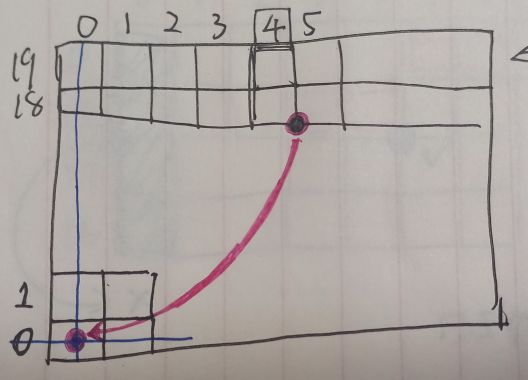 0 1 2 3 4 5
19
18
1
0